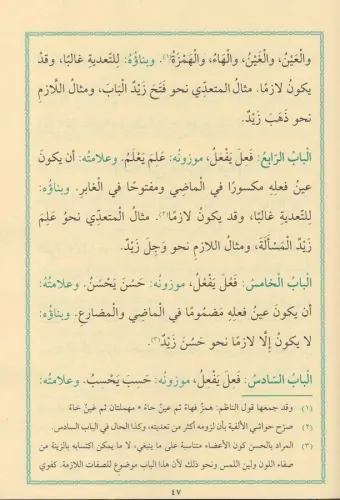 وَالْعَيْنُ، وَالْغَيْنُ، وَالْهَاءُ، وَالْهَمْزَةُ(١). وبناؤُهُ: لِلتَّعديةِ غالبًا، وقدْ
يكونُ لازمًا. مثالُ المتعدِّي نحو فَتَحَ زَيْدٌ الْبَابَ، ومثالُ اللَّازمِ
نحو ذَهَبَ زَيْدٌ.
الْبابُ الرَّابعُ: فَعِلَ يَفْعَلُ، موزونُه: عَلِمَ يَعْلَمُ. وعلامتُه: أن يكونَ
عينُ فعلِهِ مكسورًا في الْماضي ومفتوحًا في الْغابرِ. وبناؤُه:
للتعديةِ غالبًا، وقد يكونُ لازمًا(٢). مثالُ الْمتعدي نحوُ عَلِمَ
زَيْدٌ الْمَسْأَلَةَ، ومثالُ اللازمِ نحو وَجِلَ زَيْدٌ.
الْبابُ الْخامسُ: فَعُلَ يَفْعُلُ، موزونُه: حَسُنَ يَحْسُنُ. وعلامتُهُ:
أن يكونَ عينُ فعلِهِ مَضمُومًا في الْماضي والْمضارعِ. وبناؤُه:
لا يكونُ إلَّا لازمًا نحو حَسُنَ زَيْدٌ(٣).
الْبابُ السَّادسُ: فَعِلَ يَفْعِلُ، موزونُه: حَسِبَ يَحْسِبُ. وعلامتُهُ:
(١) وقد جمعها قول الناظم: همزٌ فهاءٌ ثم عينٌ حاء * مهملتان ثم غينٌ خاءُ
(٢) صرّح حواشي الألفية بأن لزومه أكثر من تعديته، وكذا الحال في الباب السادس.
(٣) المراد بالحسن كون الأعضاء متناسبة على ما ينبغي، لا ما يمكن اكتسابه بالزينة من
صفاء اللون ولين اللمس ونحو ذلك لأن هذا الباب موضوع للصفات اللازمة. كفوي
٤٧